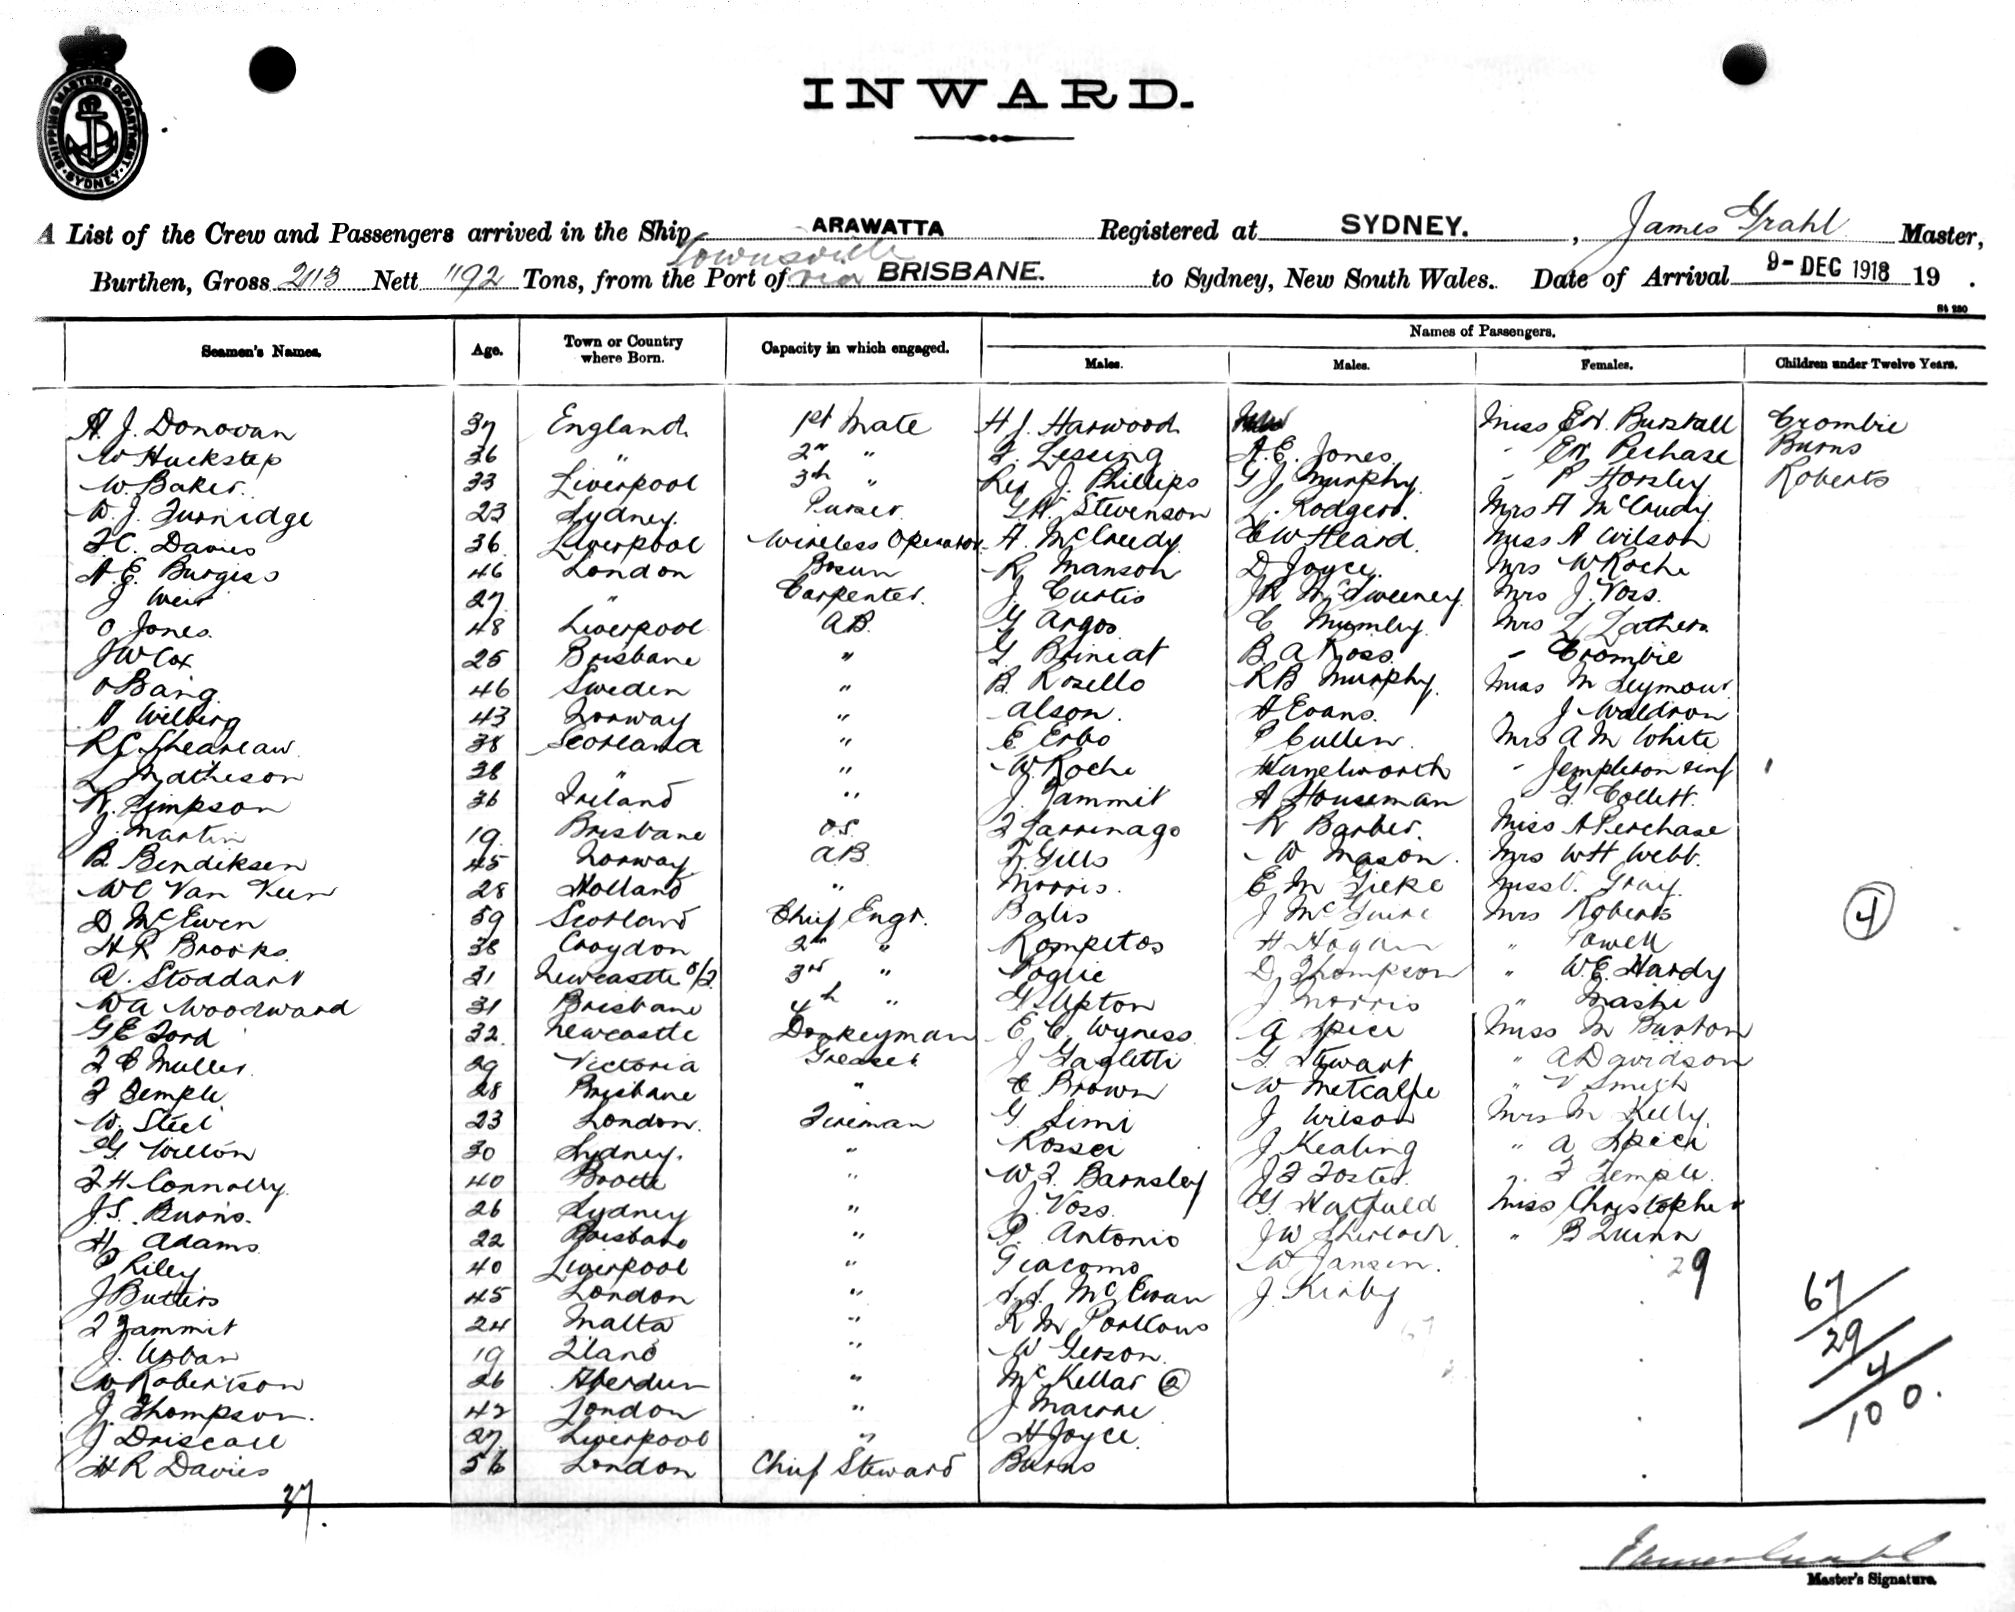 SHIPPING MASTERS DEPARTMENT
SYDNEY
INWARD.
A List of the Crew and Passengers arrived in the Ship ARAWATTA Registered at SYDNEY. , James Grahl Master,
Townsville
Burthen, Gross 2113 Nett 1192 Tons, from the Port of via BRISBANE. to Sydney, New South Wales. Date of Arrival 9- DEC 1918 19 .
St 280
Seamen's Names. Age. Town or Country where Born. Capacity in which engaged. Names of Passengers.
Males. Males. Females. Children under Twelve Years.
A. J. Donovan 37 England 1st Mate H J. Harwood Miss Burstall Crombie
W Huckstep 36 " 2nd " F. Lessing A. E. Jones " Perchase Burns
W. Baker. 33 Liverpool 3th " Rev J. Phillips G J. Murphy. " P Horsley Roberts
W. J. Furnidge 23 Sydney. Purser. G. W. Stevenson L. Rodgers. Mrs A McCrudy.
F C. Davies 36 Liverpool Wireless Operator H. McCreedy. C W Heard. Miss A Wilson
A. E. Burgiss 46 London Bosun R Manson D Joyce. Mrs W Roche
J Weir 27 " Carpenter. J. Curtis McSweeney. Mrs J. Voss.
O Jones. 48 Liverpool AB. G Argos E Mumby. Mrs
J W Cox 25 Brisbane " G. Briniat B A Ross. " Crombie
O Bang. 46 Sweden " B. Rosello R B Murphy. Miss M Seymour
A Wilberg 43 Norway " Alson. A Evans. J Waldron
R C Shearlaw 38 Scotland " E Erbo P Cullen. Mrs A M White
L Matheson 38 " " W Roche " Templeton & inf 1
R. Simpson 36 Ireland " J. Zammit A Houseman G. Collett.
J. Martin 19 Brisbane O.S. F Larrinago R Barber. Miss A Perchase
B. Bendiksen 45 Norway AB. F. Gills W Mason. Mrs W H Webb.
W C Van Veen 28 Holland " Morris. E M Gieke Miss Gray.
D McEwen 59 Scotland Chief Engr. Balis J McGuire Mrs Roberts 4
H R Brooks. 38 Croydon 2nd " Rompetos H Hogan " Powell
A. Stoddart 31 Newcastle 3rd " D Thompson " W. E. Hardy
W A Woodward 31 Brisbane 4th " G Upton J Morris "
G E Ford 32. Newcastle Donkeyman E C Wyness A Spice Miss M Burton
F C Muller. 29 Victoria Greaser J Gagletti G. Stewart " A Davidson
F Temple 28 Brisbane " C Brown W Metcalfe " V Smith
W. Steel 23 London. Fireman G. Simi J Wilson Mrs M Kelly.
G. Wilson 30 Sydney. " J Kealing " A Spice
F H Connolly. 40 " W. F. Barnsley J F Foster. " F Temple.
J. S. Burns. 26 Sydney " J. Voss. G. Hatfield Miss Christopher
H. Adams. 22 Brisbane " P. Antonio J W Sherlock. " B Quinn
P Riley 40 Liverpool " Giacomo W Jansen. 29
J Butters 45 London " McEwan J. Kirby
F Zammit 24 Malta " R M
J. Urban 19 " W Gerson.
W Robertson 26 Aberdeen " McKellar 2
J. Thompson. 42 London " J
J Driscall 27 Liverpool " H Joyce.
H R Davies 56 London Chief Steward Burns
37.
67
29
4
100.
James Grahl
Master's Signature.